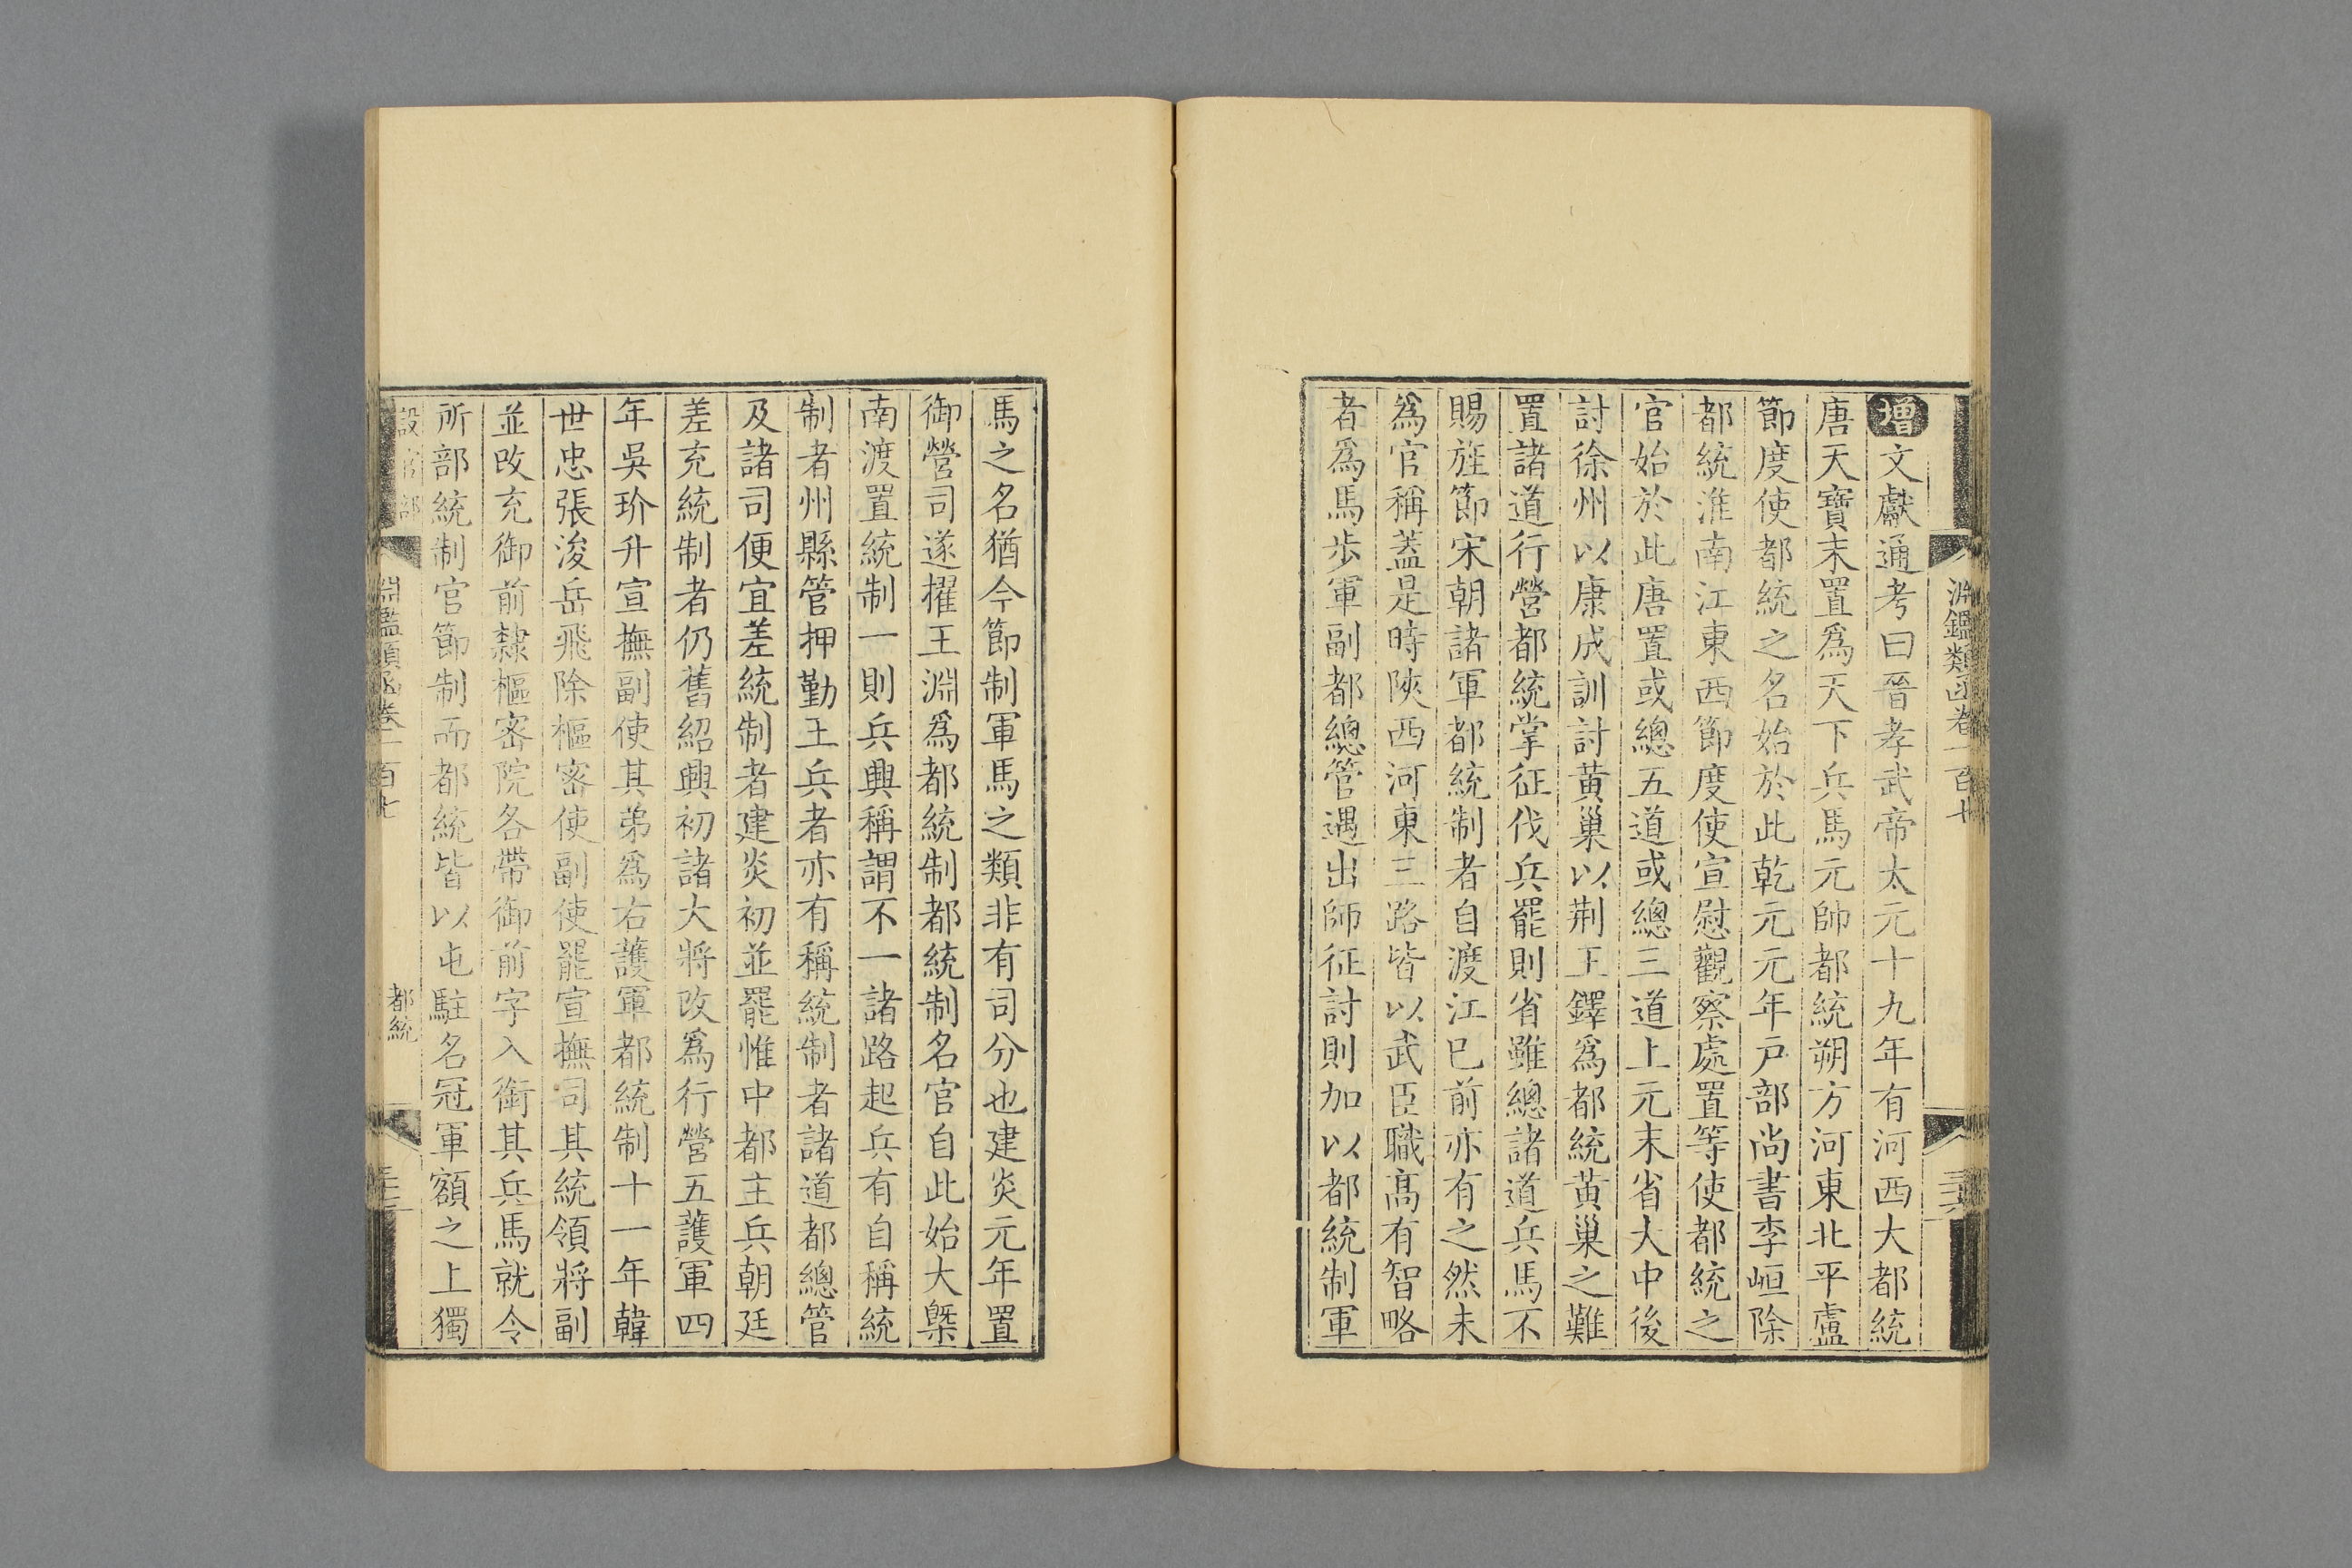 淵鑑類函卷一百七
增文獻通考曰晉孝武帝太元十九年有河西大都統
唐天寶末置爲天下兵馬元帥都統朔方河東北平盧
節度使都統之名始於此乾元元年戶部尚書李峘除
都統淮南江東西節度使宣慰觀察處置等使都統之
官始於此唐置或總五道或總三道上元末省大中後
討徐州以康成訓討黃巢以荆王鐸爲都統黃巢之難
置諸道行營都統掌征伐兵罷則省雖總諸道兵馬不
賜旌節宋朝諸軍都統制者自渡江已前亦有之然未
爲官稱蓋是時陝西河東三路皆以武臣職高有智略
者爲馬步軍副都總管遇出師征討則加以都統制軍
馬之名猶今節制軍馬之類非有司分也建炎元年置
御營司遂擢王淵爲都統制都統制名官自此始大槩
南渡置統制一則兵興稱謂不一諸路起兵有自稱統
制者州縣管押勤王兵者亦有稱統制者諸道都總管
及諸司便宜差統制者建炎初並罷惟中都主兵朝廷
差充統制者仍舊紹興初諸大將改爲行營五護軍四
年吳玠升宣撫副使其弟爲右護軍都統制十一年韓
世忠張浚岳飛除樞密使副使罷宣撫司其統領將副
並改充御前隸樞密院各帶御前字入銜其兵馬就令
所部統制官節制而都統皆以屯駐名冠軍額之上獨
設官部
淵鑑類函卷一百七
都統